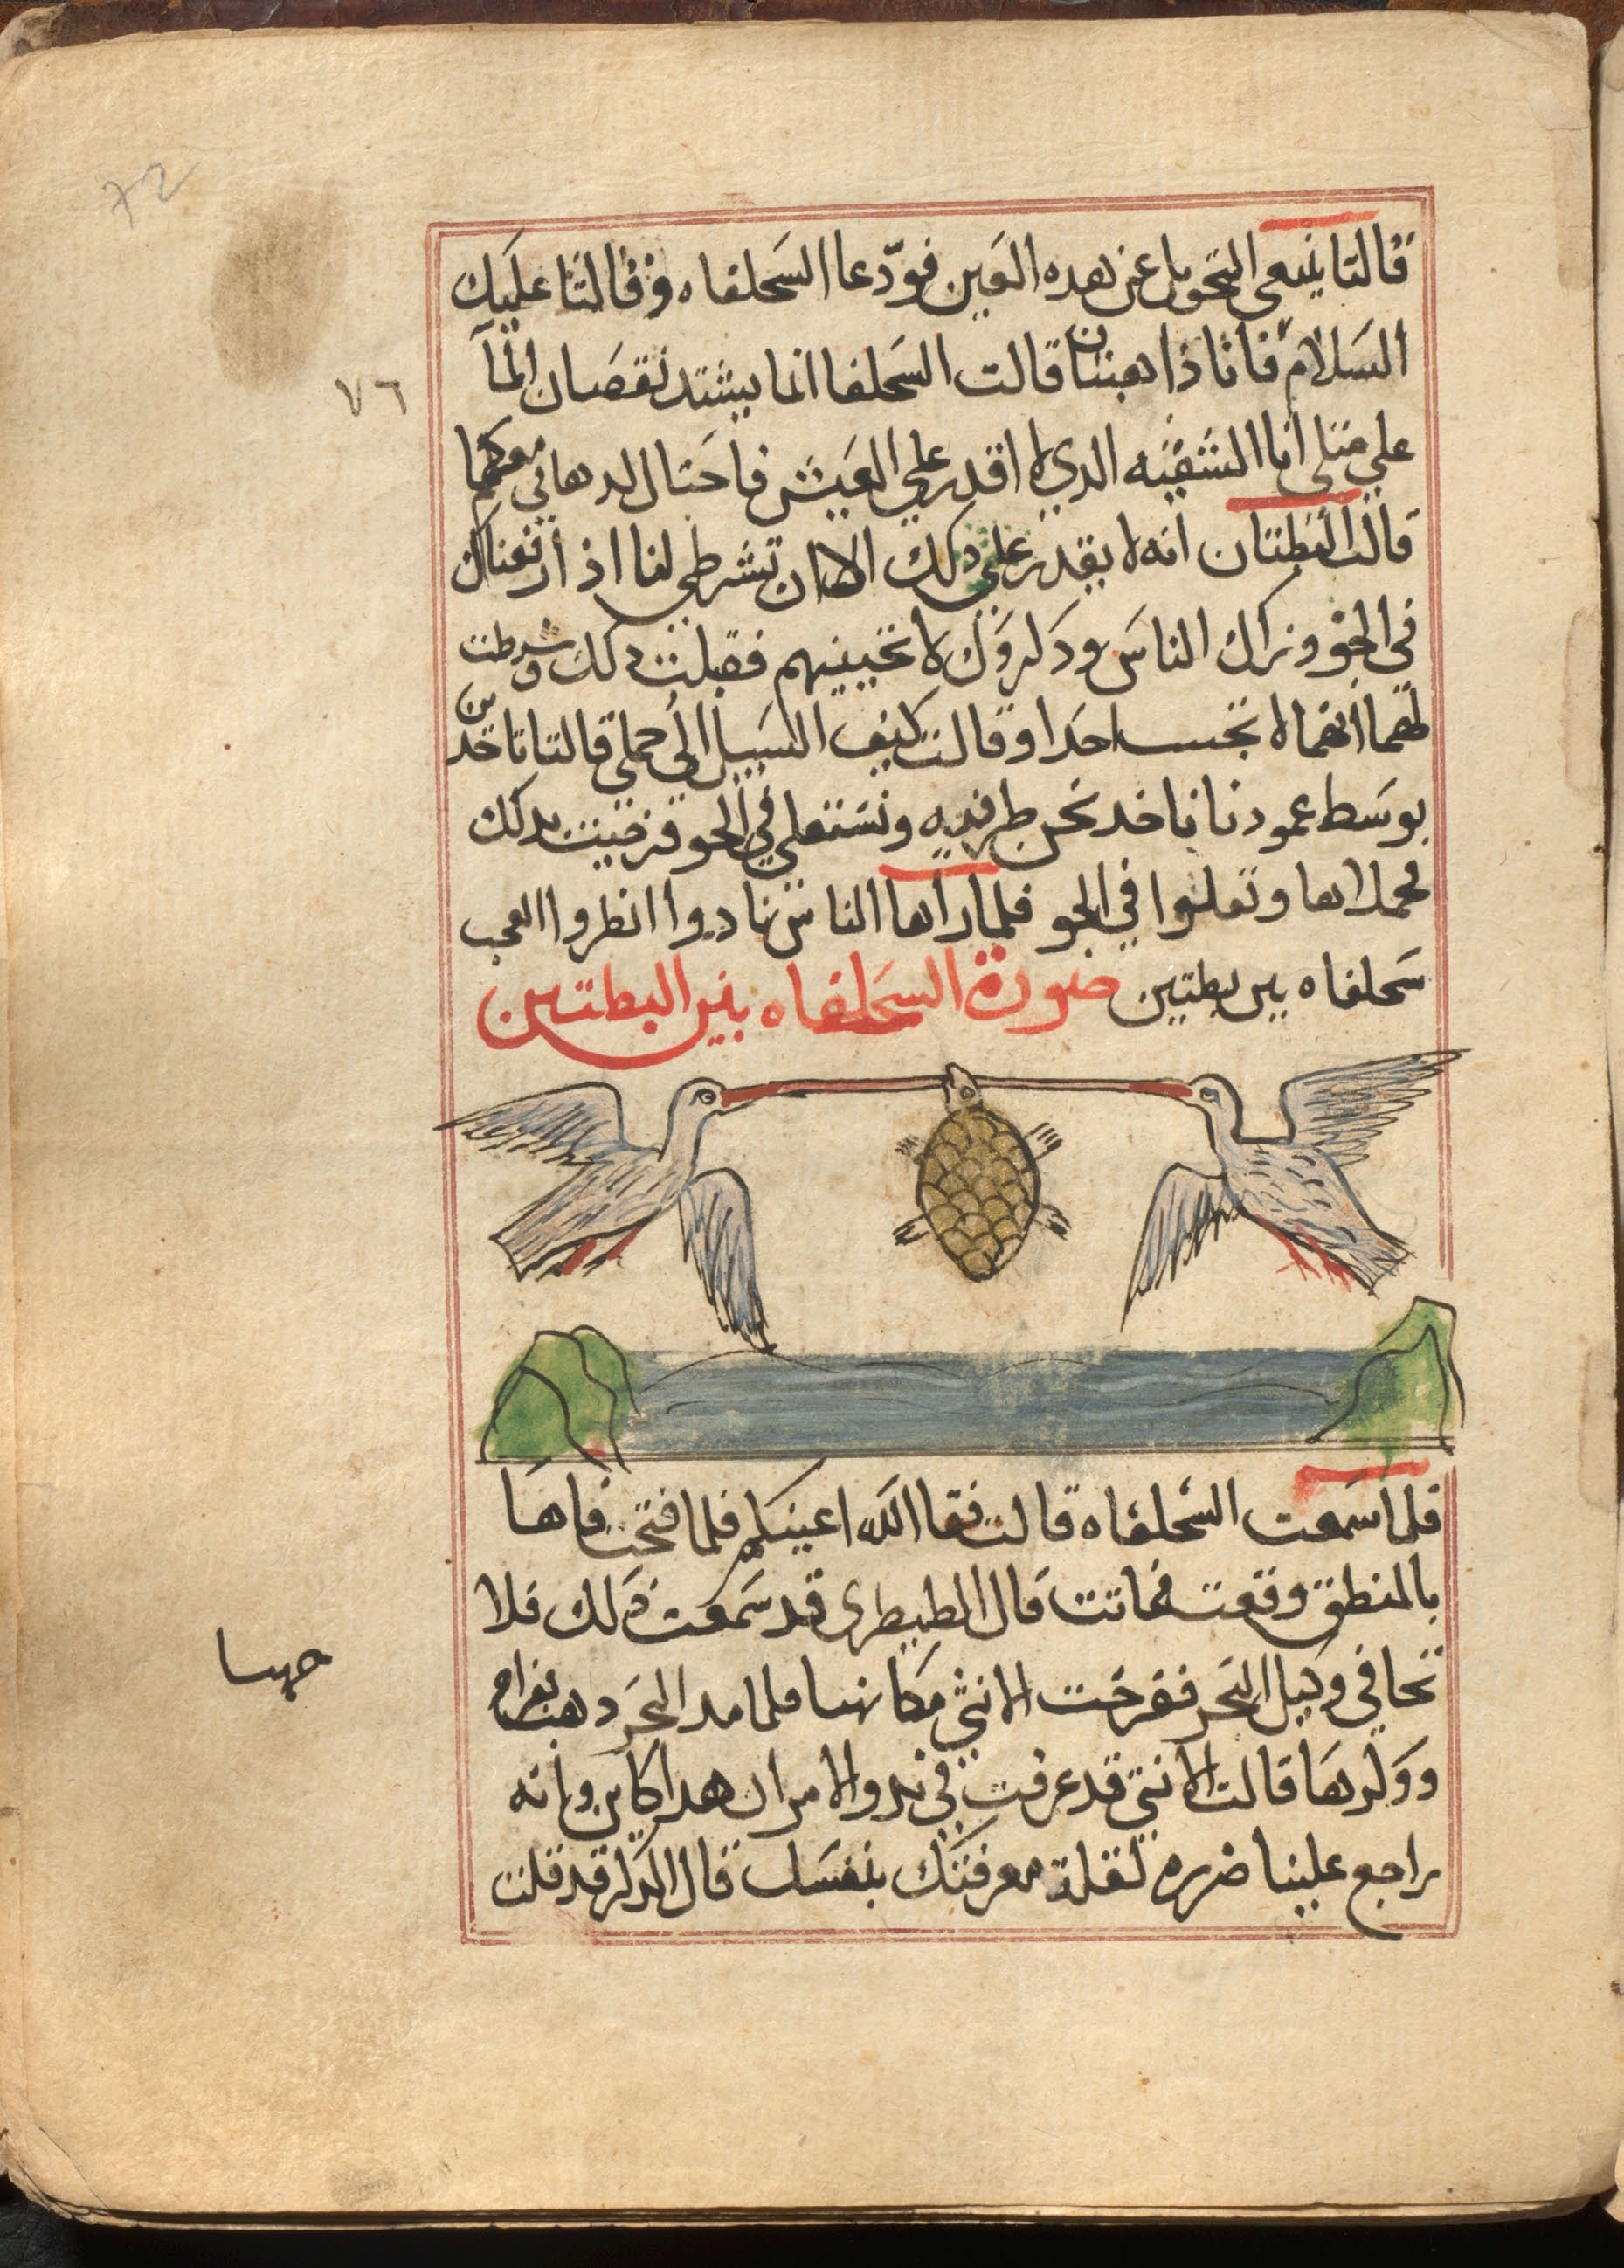 72
٧٦
قالتا ينبغي التحويل عن هده العين فودّعا السَحلفاه وقالتا عليَك
السَلامُ فاناذاهبتان قالت السَحلفا انما يشتد نقصَان المآ
علي مثلي انا الشقيه الدي لا اقدر علي العَيش فاحتال لدهابي معكما
قالت البطتان انه لا يقدر علي دلك الا ان تشرطي لنا اذ ارفعناك
في الجو ونراك الناسَ ودكروَك لا تجيبيهم فقبلت دلك وشرطت
لهما انهما لا تجيب احدا وقالت كيف السَبيل الي حملي قالتا تاخدين
بوسَط عمود ناناخد نحن طرفيه ونستعلي في الجو فرضيت بدلك
فحملاها وتعلوا في الجو فلما راها الناس نادوا انظروا العجب
سَحلفاه بين بطتين صورة السَحلفاه بين البطتين
فلما سَمعت السَحلفاه قالت فقا الله اعينكم فلما فتحت فاها
بالمنطق وقعت فماتت قال الطيطرى قد سَمعت دَلك فلا
تخافي وكيل البَحر ففرخت الانثي مكانها فلما مد البحَر دهب بفراخ
ووَلدهَا قالت الانثي قد عرفت في بدو الامر ان هدا كاين وانه
راجع علينا ضرره لقلة معرفتك بنفسَك قال الدكر قد قلت